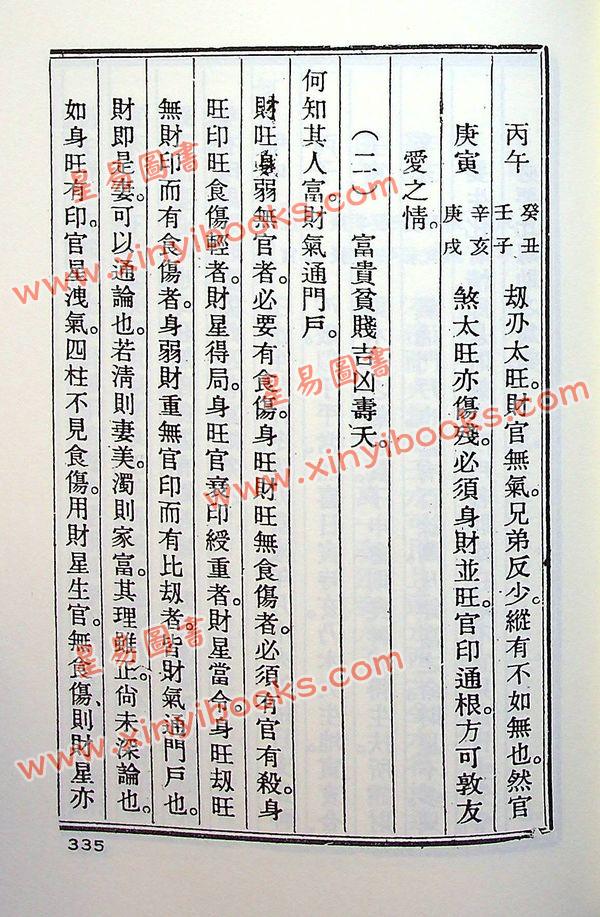 丙午 癸丑 壬子 刼刃太旺。財官無氣。兄弟反少。縱有不如無也。然官
庚寅 辛亥 庚戌 煞太旺亦傷殘。必須身財並旺。官印通根。方可敦友
愛之情。
(二) 富貴貧賤吉凶壽夭。
何知其人富。財氣通門戶。
財旺身弱無官者。必要有食傷。身旺財旺無食傷者。必須有官有殺。身
旺印旺食傷輕者。財星得局。身旺官衰印綬重者。財星當令。身旺刼旺
無財印而有食傷者。身弱財重無官印而有比刼者。皆財氣通門戶也。
財即是妻。可以通論也。若淸則妻美。濁則家富。其理雖正。尙未深論也。
如身旺有印。官星洩氣。四柱不見食傷。用財星生官。無食傷、則財星亦
335
星易圖書
www.xinyibooks.com
星易圖書
www.xinyibooks.com
星易圖書
www.xinyibooks.com